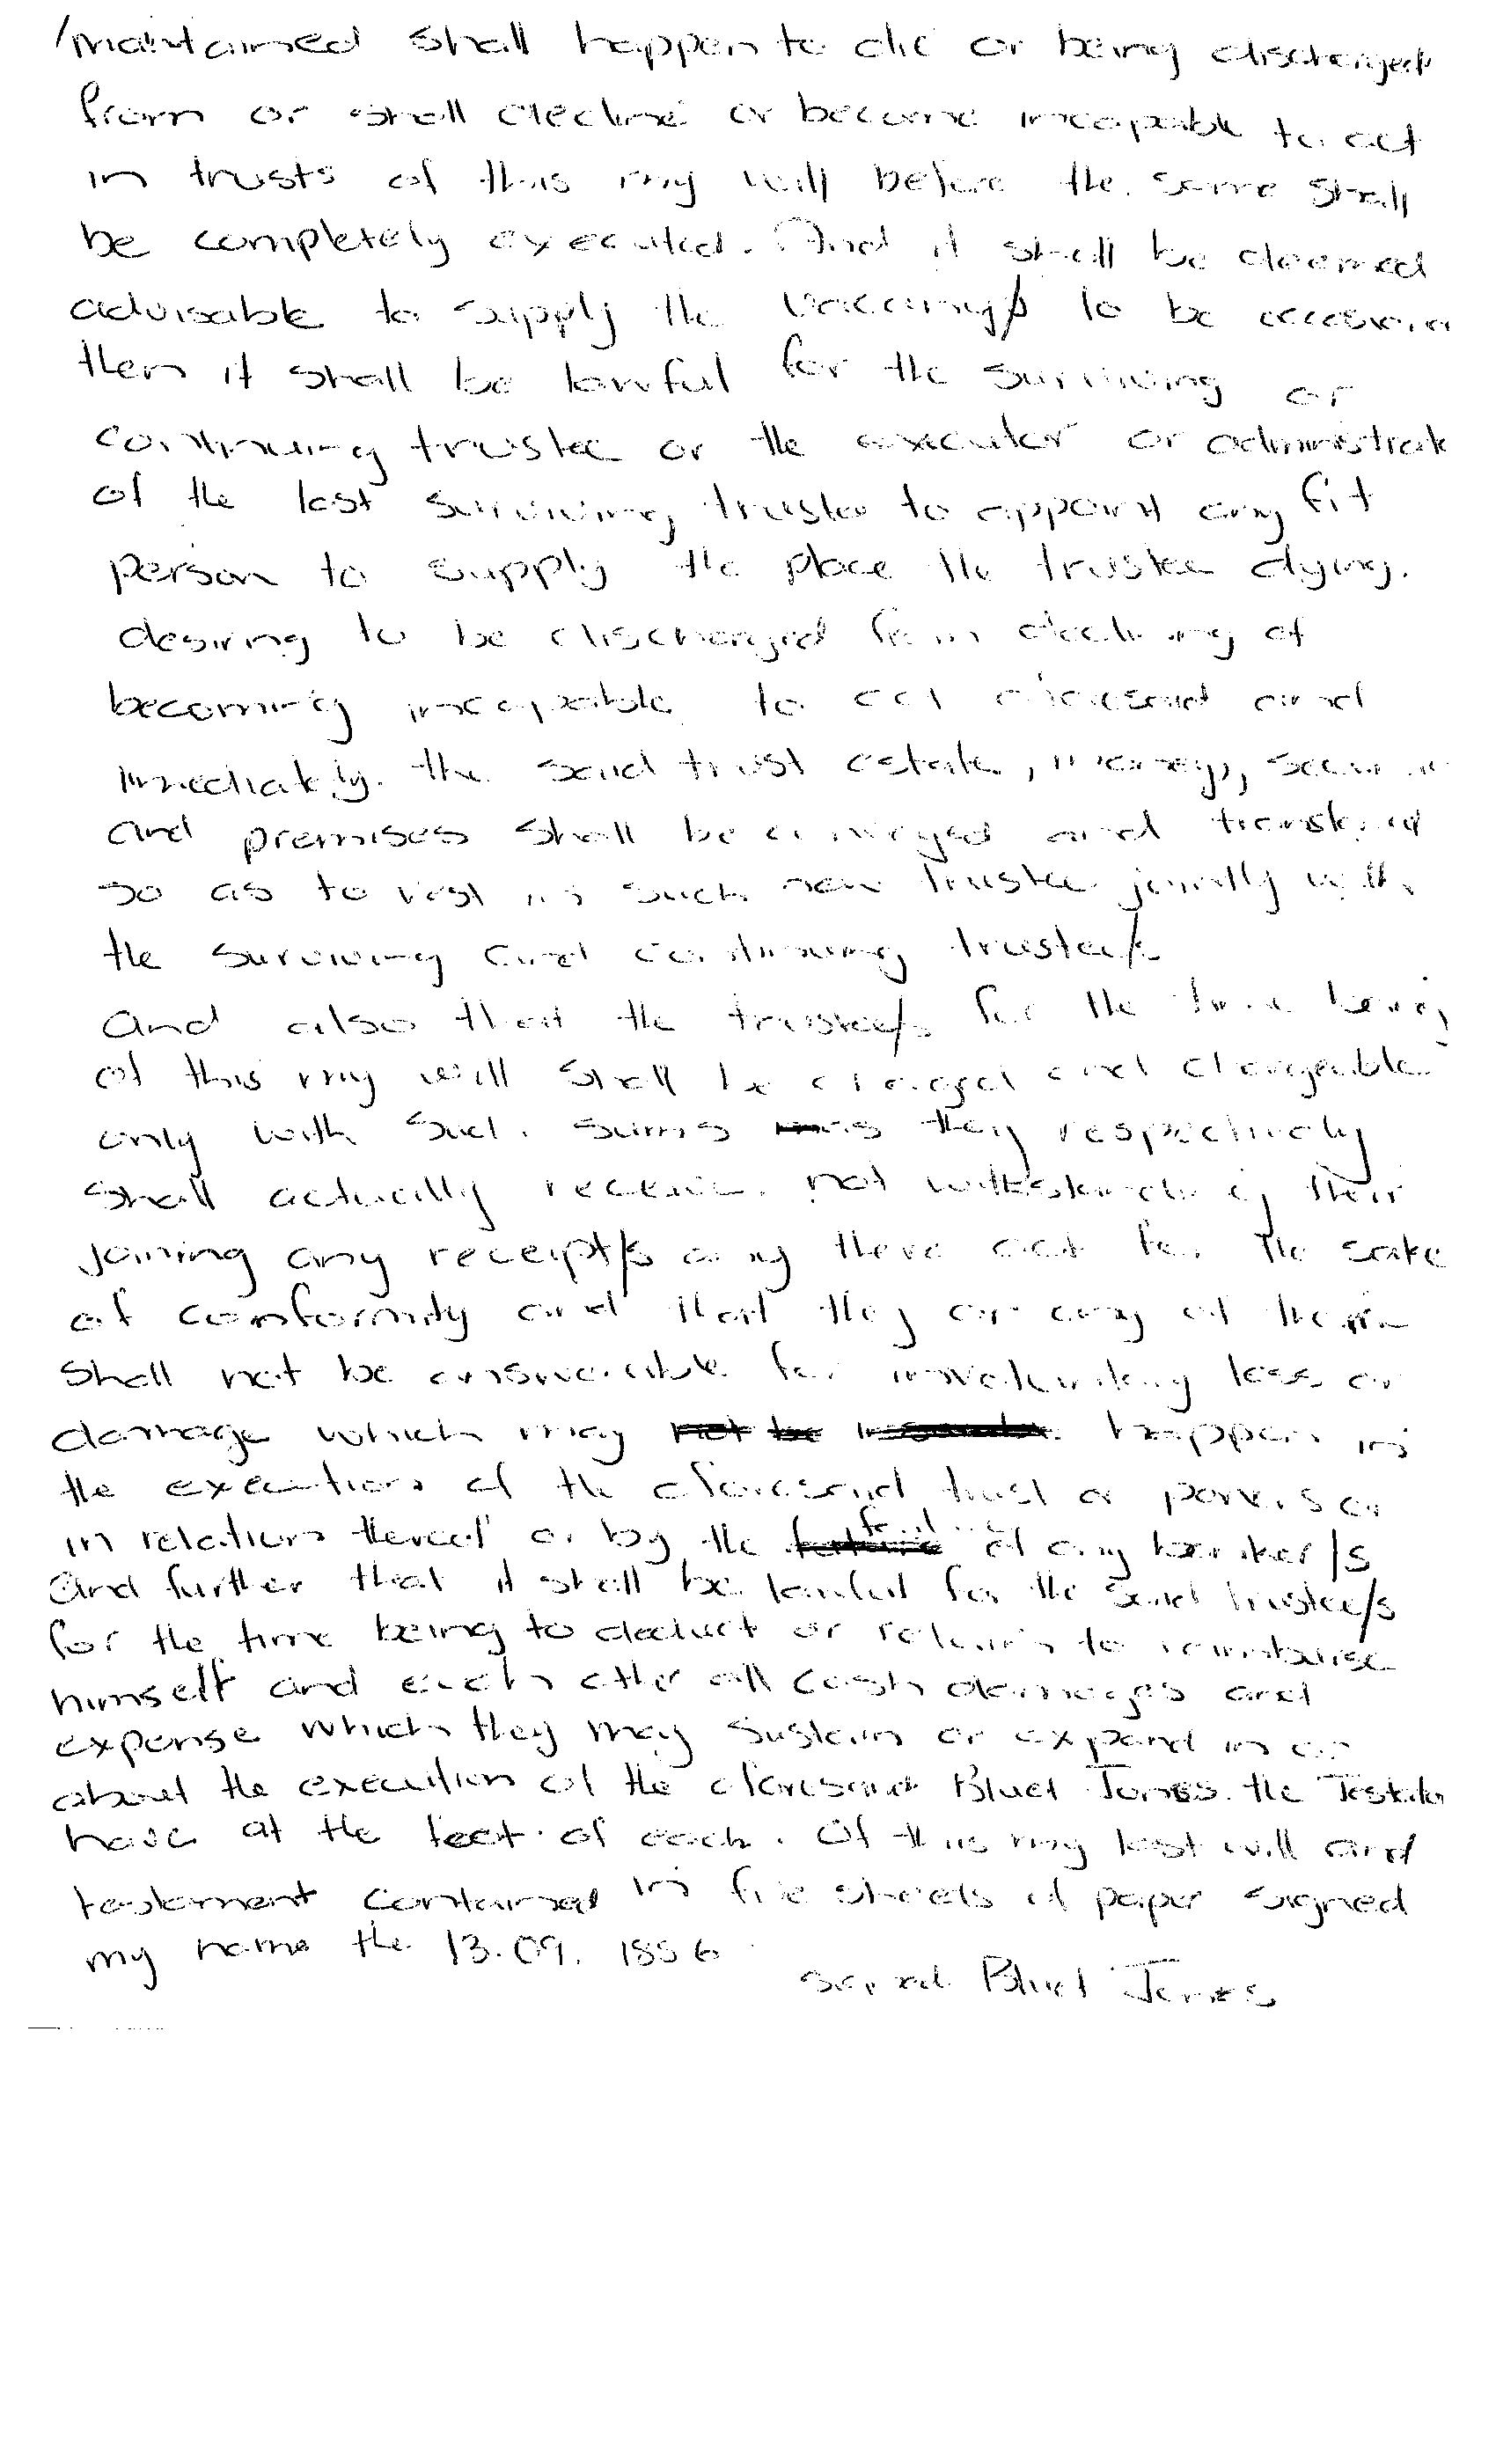 /maintained shall happen to die or being discharged
from or shall decline or become incapable to act
in trusts of this my will before the same shall
be completely executed. And it shall be deemed
advisable to supply the vacancy/s to be occasion
then it shall be lawful for the surviving or
continuing trustee or the executor or administrat
of the last surviving trustee to appoint any fit
person to supply the place the trustee dying.
desiring to be discharged from declining of
becoming incapable to act aforesaid and
immediately. the said trust estate, moneys,
and premises shall be conveyed and transferred
so as to vest in such new trustee jointly with
the surviving and continuing trustee/s
and also that the trustee/s for the time being
of this my will shall be charged and chargeable
only with such sums as they respectively
shall actually receive not withstanding their
joining any receipt/s any there act for the sake
of conformity and that they or any of them
shall not be answerable for involuntary loss or
damage which may happen in
the execution of the aforesaid trust or powers or
in relation thereof or by the of any banker/s
and further that it shall be lawful for the said trustee/s
for the time being to deduct or retain to reimburse
himself and each other all cash damages and
expense which they may sustain or expand in or
about the execution of the aforesaid Bluet Jones the Testator
have at the feet of each. Of this my last will and
testament contained in five sheets of paper signed
my name the 13.09. 1856
signed Bluet Jones